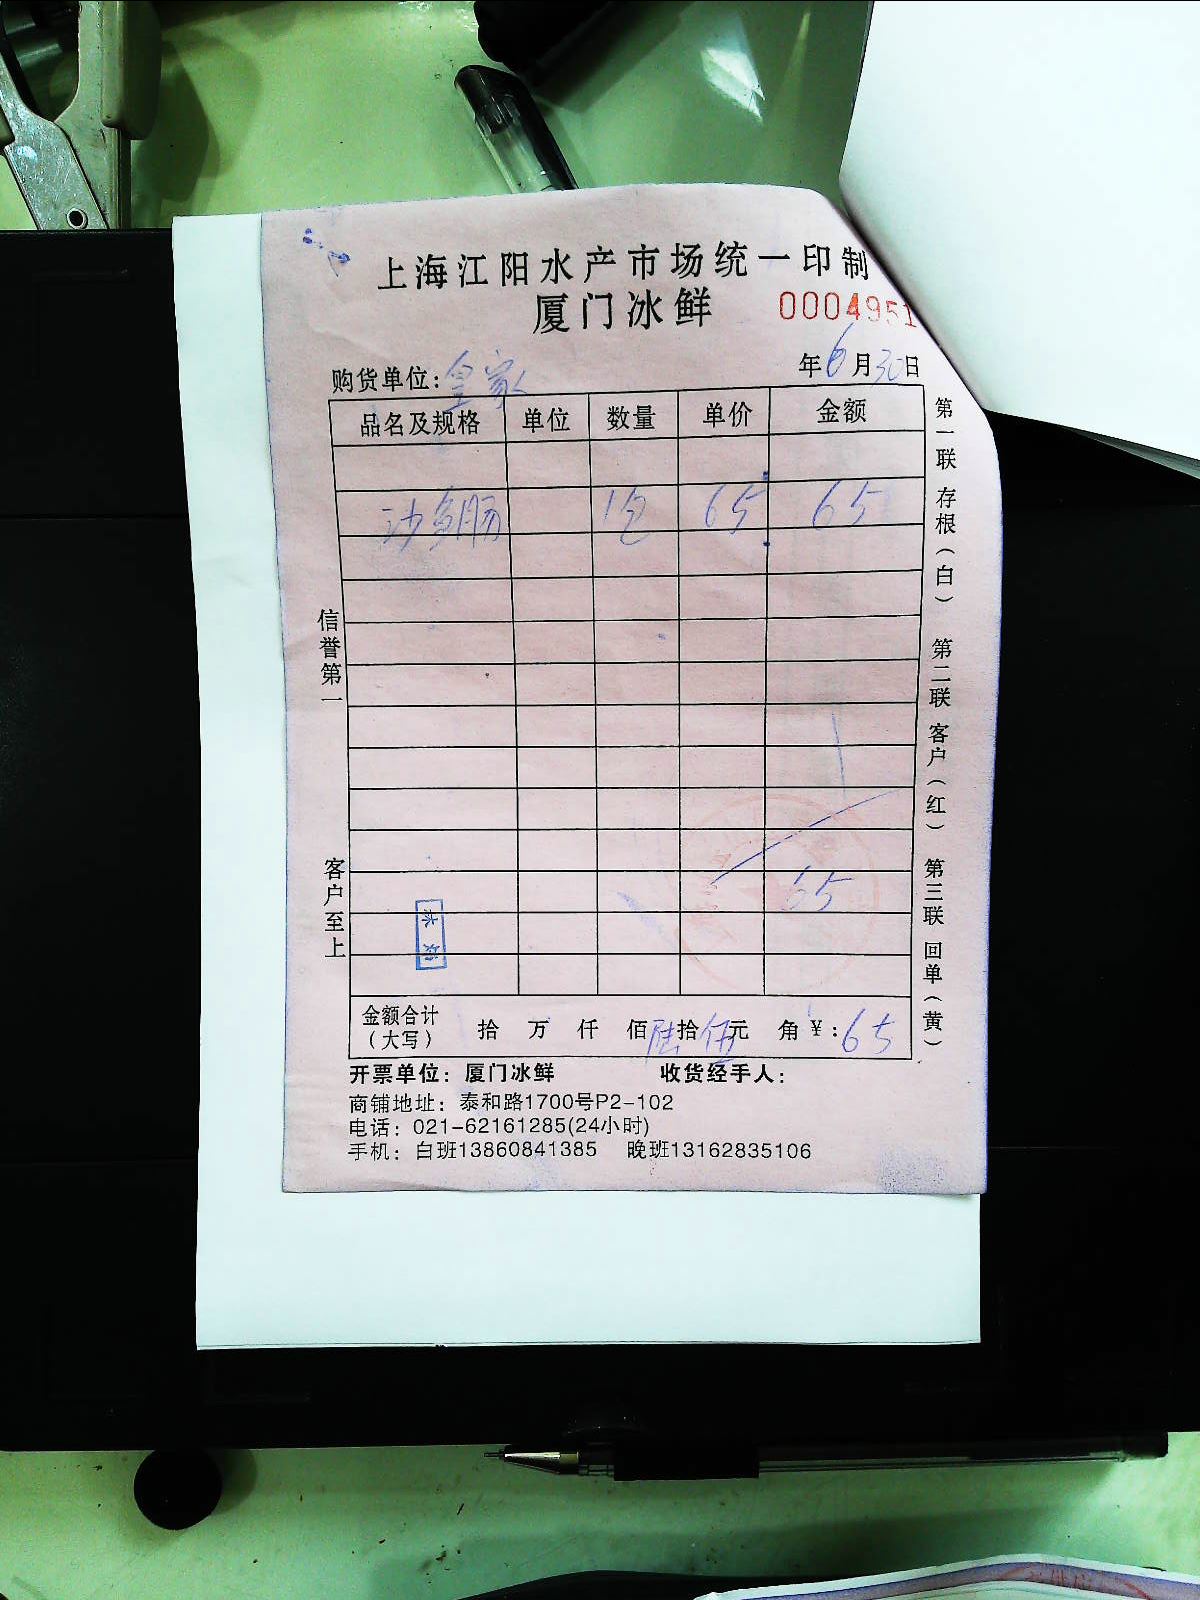 上海江阳水产市场统一印制
厦门冰鲜 0004951
购货单位:皇家 年6月30日
品名及规格 单位 数量 单价 金额
沙肠 1包 65 65
65
金额合计(大写) 拾 万 仟 佰陆拾伍元 角¥:65
开票单位:厦门冰鲜 收货经手人:
商铺地址:泰和路1700号P2-102
电话:021-62161285(24小时)
手机:白班13860841385 晚班13162835106
信誉第一
客户至上
第一联 存根(白) 第二联 客户(红) 第三联 回单(黄)